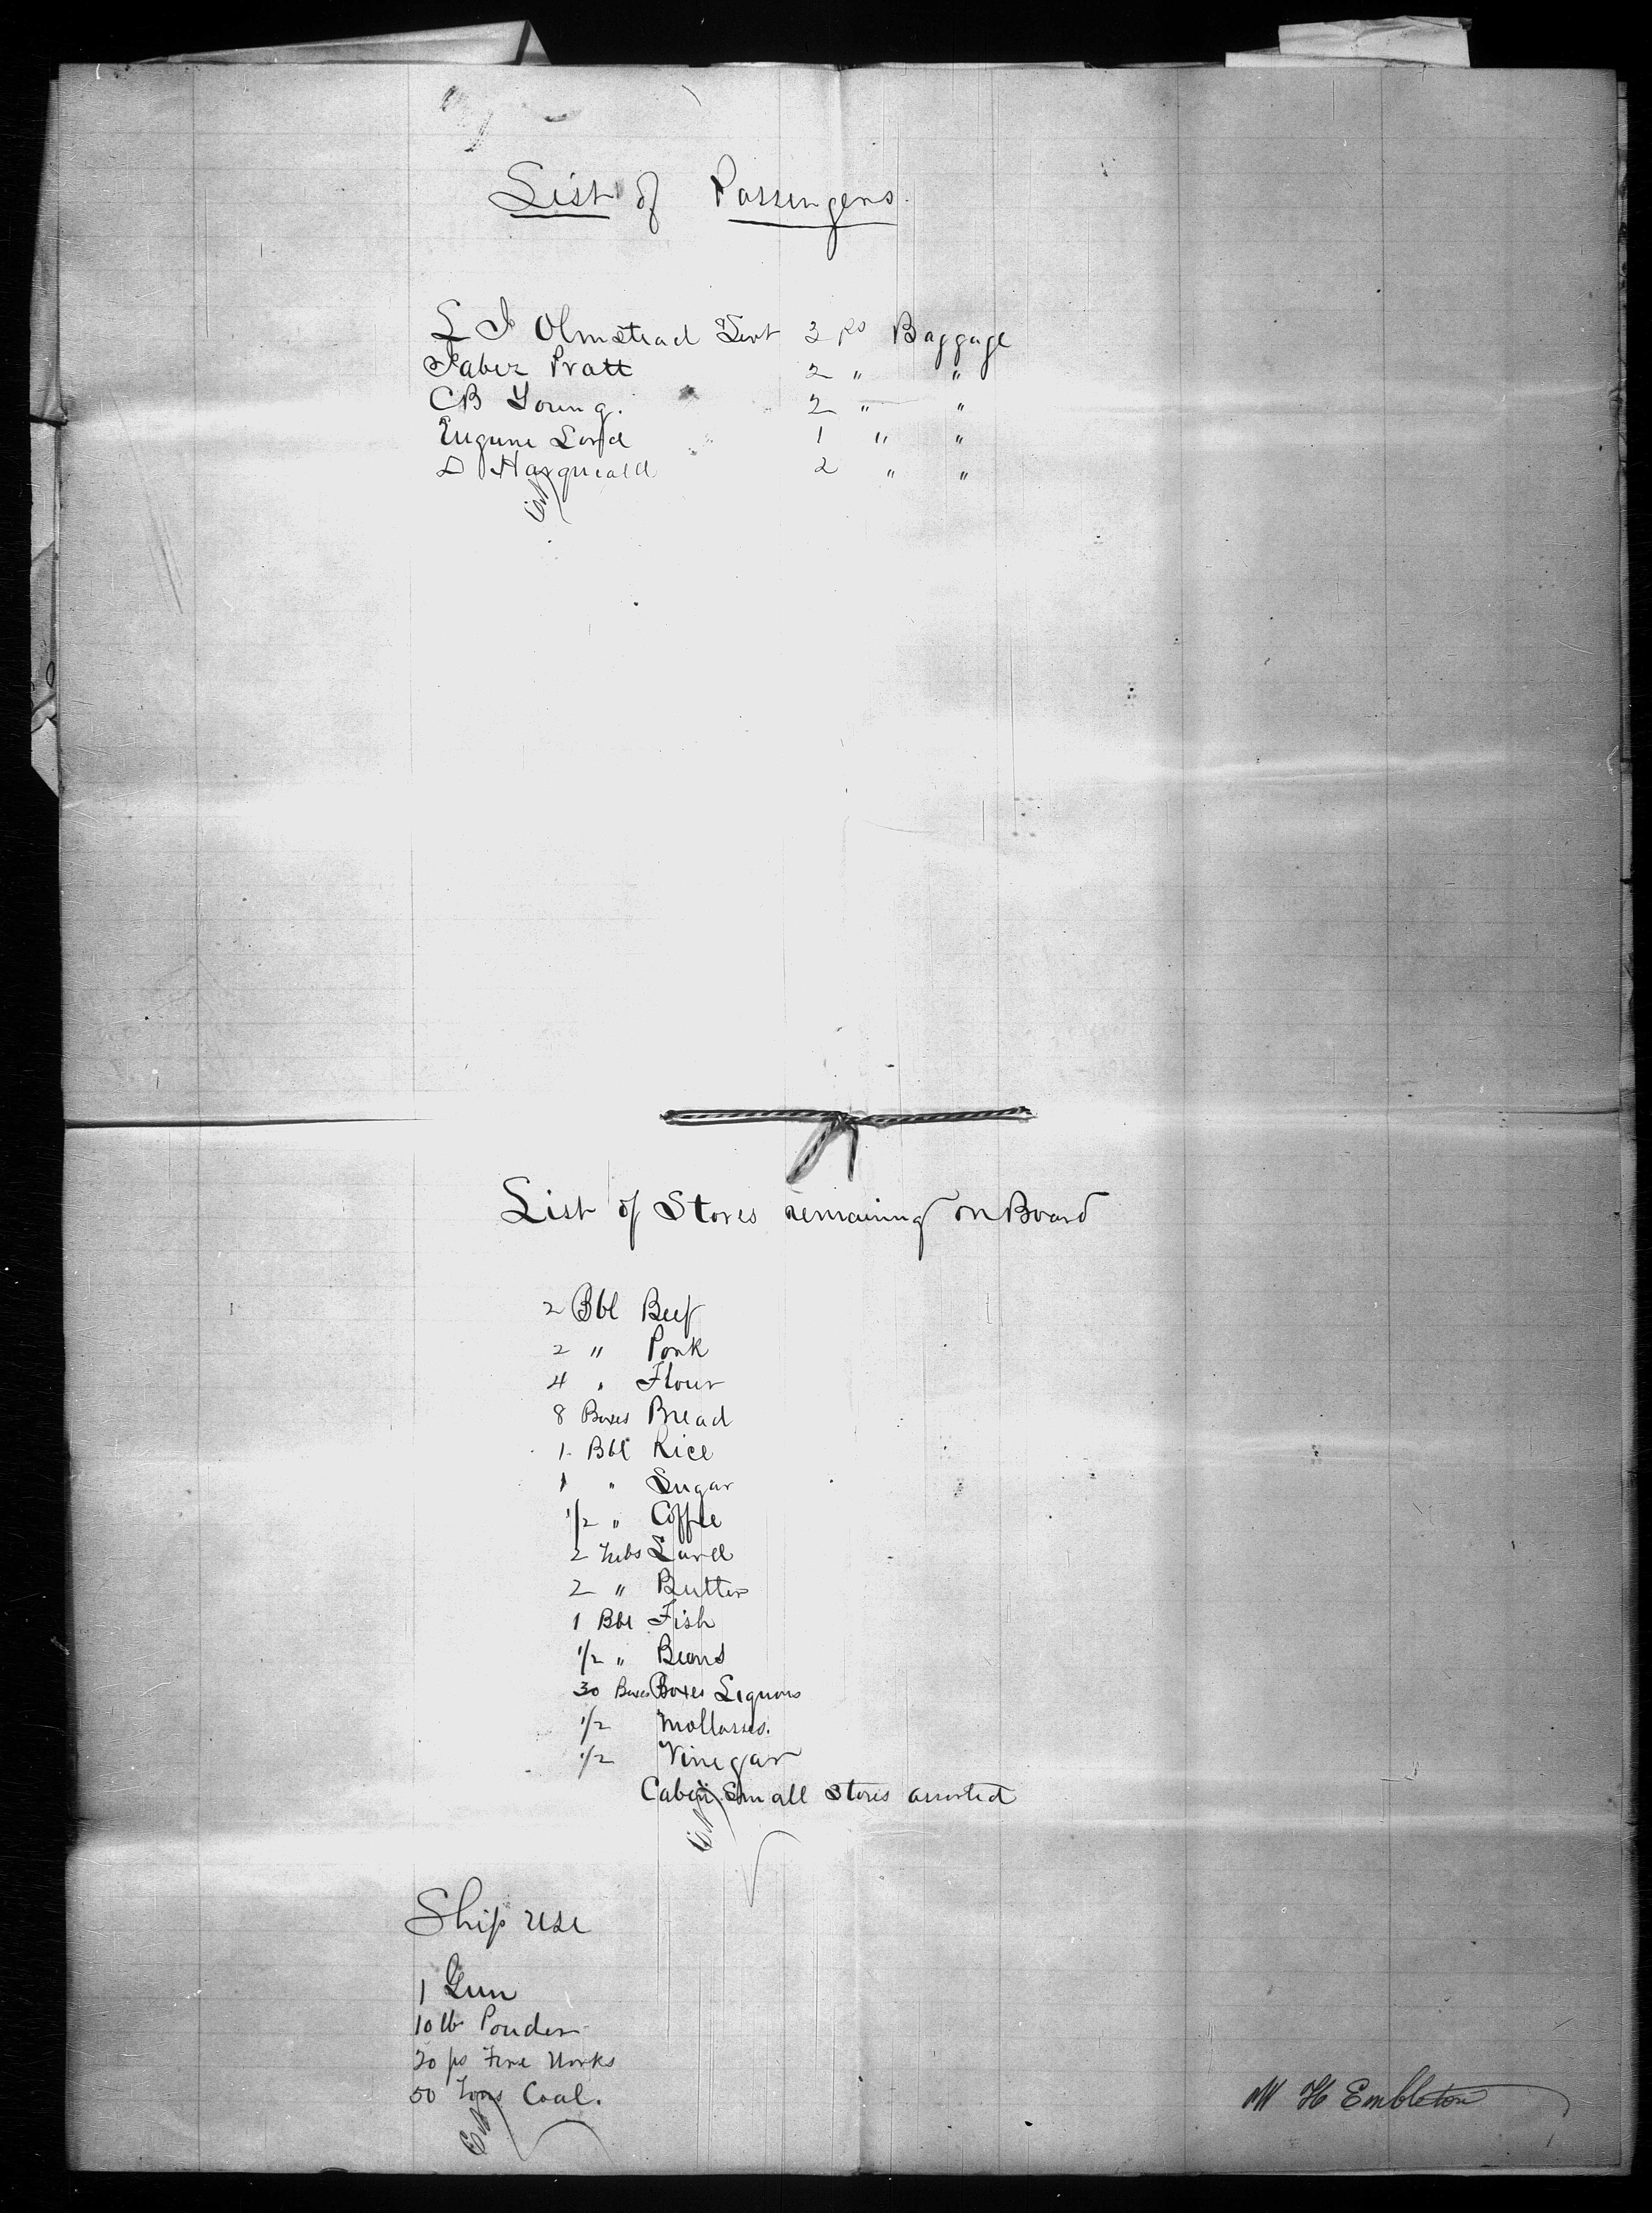 List of Passengers.
L I Olmstead 3 ps Baggage
Jabez Pratt 2 " "
CB Young. 2 " "
Eugune Lord 1 " "
D 2 " "
List of Stores remaining on Board
2 Bbl Beef
2 " Pork
4 " Flour
8 Boxes Bread
1 Bbl Rice
1 " Sugar
1/2 " Coffee
2 Tubs Lard
2 " Butter
1 Bbl Fish
1/2 " Beans
30 Boxes Boxes Liquors
1/2 Mollasses.
1/2 Vinegar
Cabin Small Stores assorted
Ship use
1 Gun
10 lb Pouder
20 ps Fire Works
50 Tons Coal.
W H Embleton